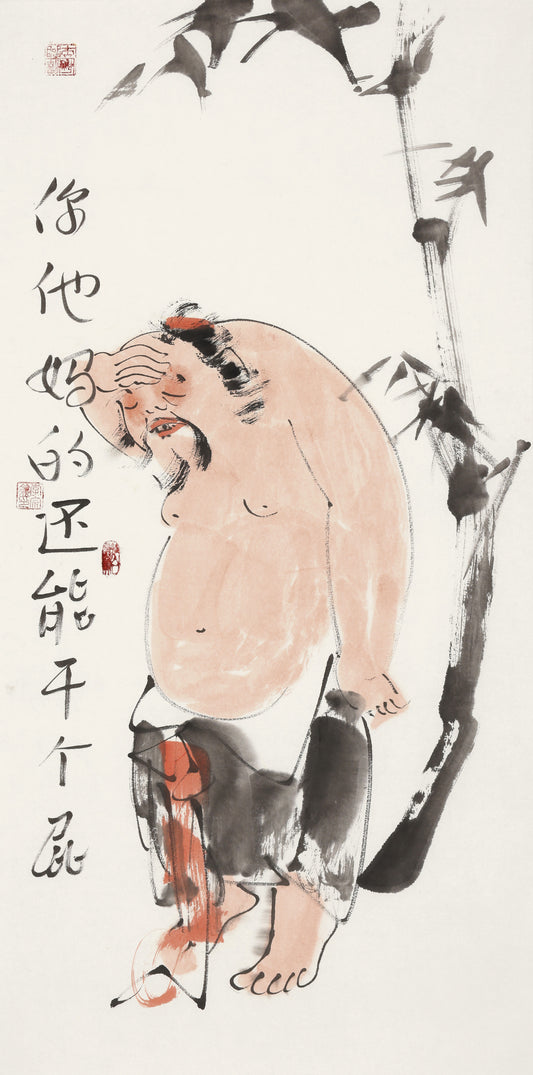 你他妈的还能干个屁